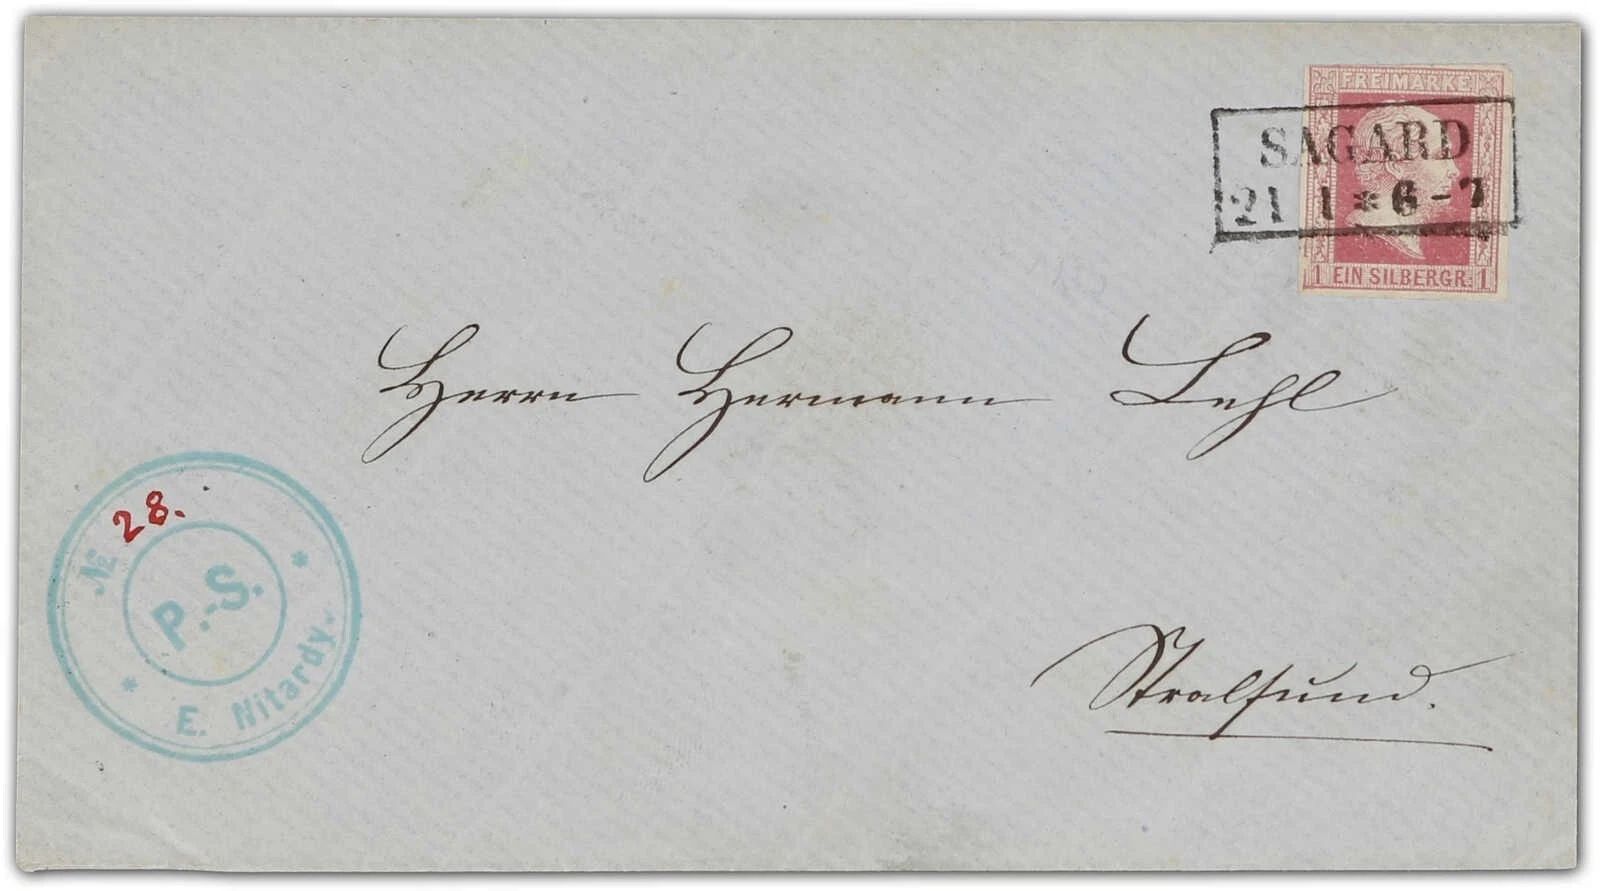 FREIMARKE
SAGARD
21 1 * 6-7
1 EIN SILBERGR. 1
Herrn Hermann Lehl
№ 28.
P.-S.
E. Nitardy.
Stralsund.